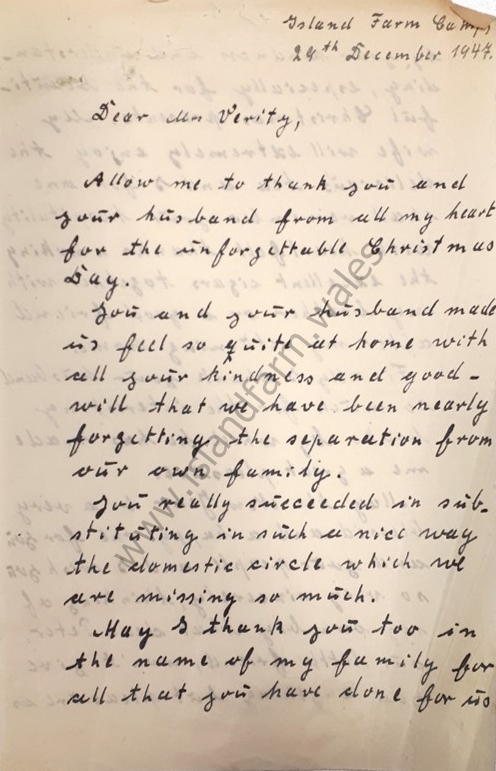 Island Farm Camp,
29th December 1947.
Dear Mrs Verity,
Allow me to thank you and
your husband from all my heart
for the unforgettable Christmas
Day.
You and your husband made
us feel so quite at home with
all your kindness and good-
will that we have been nearly
forgetting the separation from
our own family.
You really succeeded in sub-
stituting in such a nice way
the domestic circle which we
are missing so much.
May I thank you too in
the name of my family for
all that you have done for us
www.islandfarm.wales